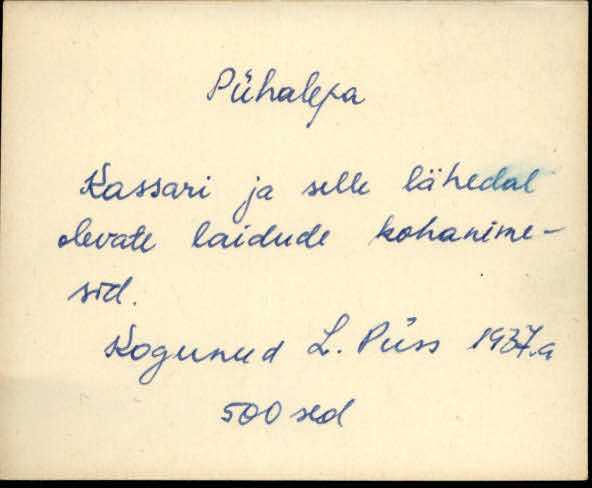 Pühalepa
Kassari ja selle lähedal
olevate laidude kohanime-
sid.
Kogunud L. Püss 1937.a
500 sed